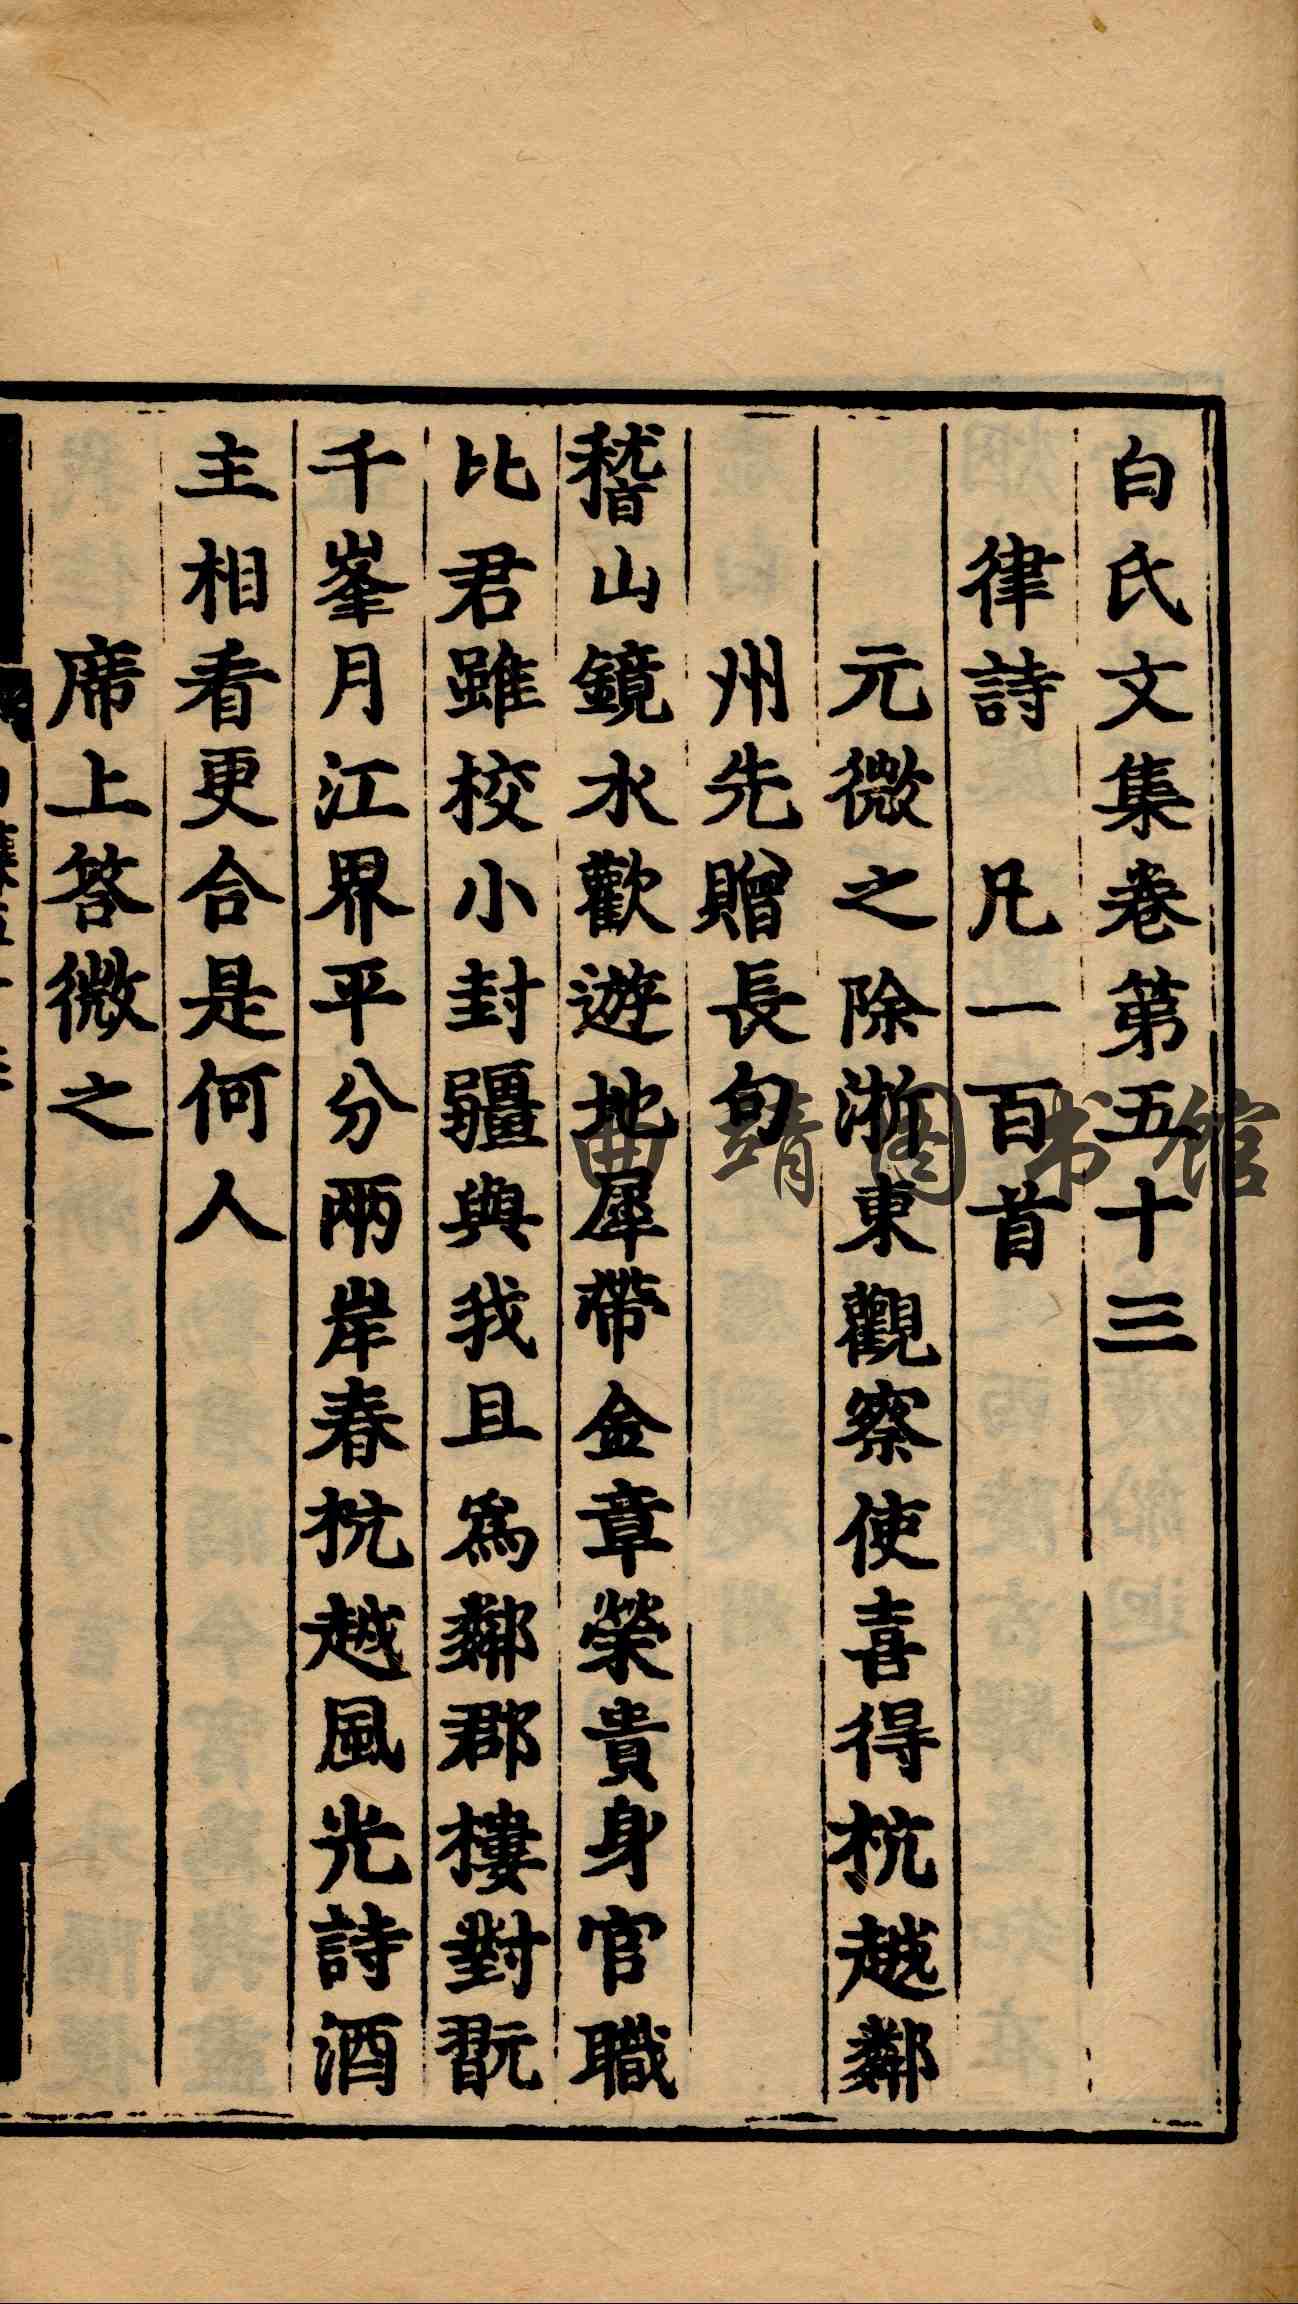 白氏文集卷第五十三
律詩 凡一百首
元微之除浙東觀察使喜得杭越鄰
州先贈長句
稽山鏡水歡遊地犀帶金章榮貴身官職
比君雖校小封疆與我且爲鄰郡樓對翫
千峯月江界平分兩岸春杭越風光詩酒
主相看更合是何人
席上答微之
曲靖图书馆